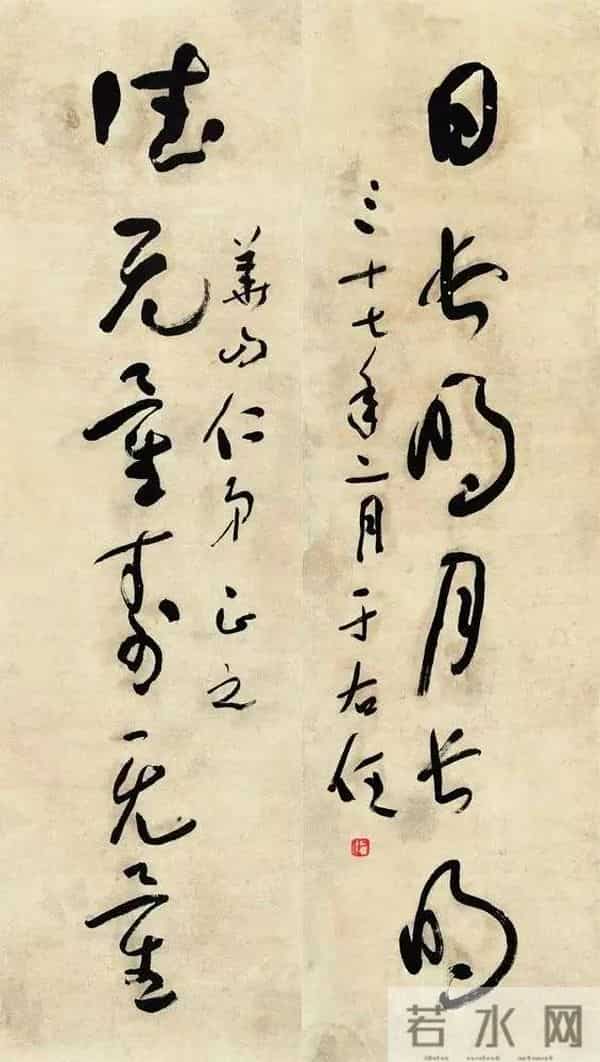 日長明月長明
三十七年二月于右任
華仁弟正之
德无量壽无量
若水网